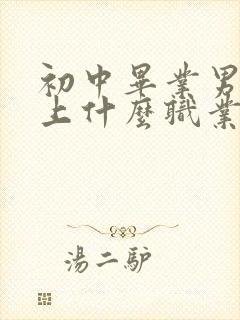 初中畢業男
上什麼職業
湯二驴